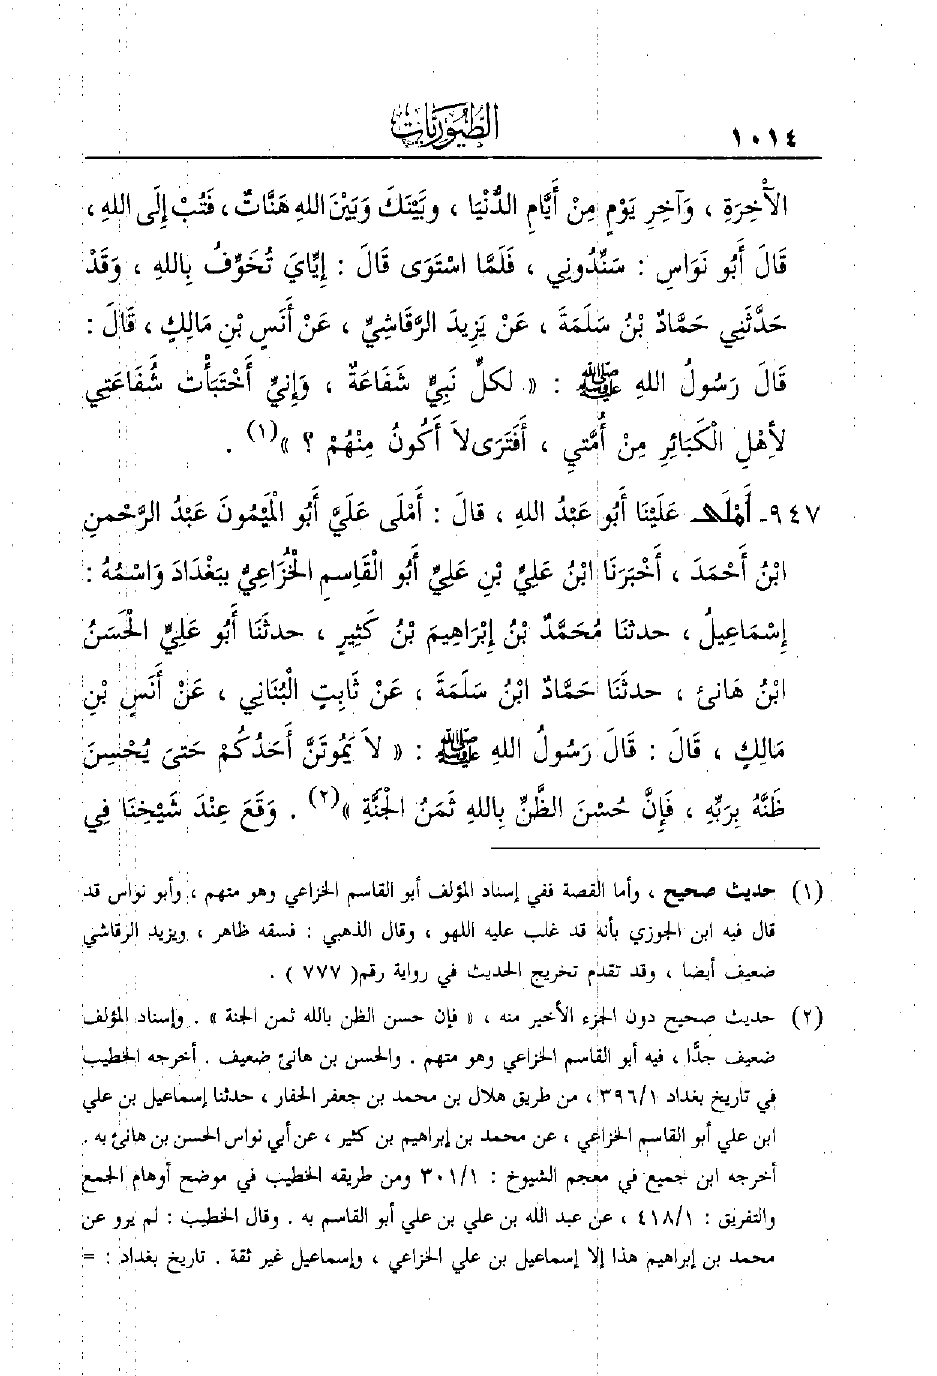 ١٠١٤ الطيوريات
الْآخِرَةِ ، وَآخِرِ يَوْمٍ مِنْ أَيَّامِ الدُّنْيَا ، وبَيْنَكَ وَبَيْنَ اللهِ هَنَّاتٌ ، فَتُبْ إِلَى اللهِ ،
قَالَ أَبُو نَوَاسِ : سَنِّدُونِي ، فَلَمَّا اسْتَوَى قَالَ : إِيَّايَ تُخَوِّفُ بِاللهِ ، وَقَدْ
حَدَّثَنِي حَمَّادُ بْنُ سَلَمَةَ ، عَنْ يَزِيدَ الرَّقَاشِيِّ ، عَنْ أَنَسِ بْنِ مَالِكٍ ، قَالَ :
قَالَ رَسُولُ اللهِ ﷺ : « لكلِّ نَبِيٍّ شَفَاعَةٌ ، وَإِنيِّ أَخْتَبَأْتُ شُفَاعَتِي
لأِهْلِ الْكَبَائِرِ مِنْ أُمَّتيِ ، أَفَتَرَى لاَ أَكُونُ مِنْهُمْ ؟ »(١) .
٩٤٧- أَمْلَى عَلَيْنَا أَبُو عَبْدُ اللهِ ، قالَ : أَمْلَى عَلَيَّ أَبُو الْمَيْمُونَ عَبْدُ الرَّحْمنِ
ابْنُ أَحْمَدَ ، أَخْبَرَنَا ابْنُ عَلِيِّ بْنِ عَلِيِّ أَبُو الْقَاسِمِ الْخُزَاعِيُّ بِبَغْدَادَ وَاسْمُهُ :
إِسْمَاعِيلُ ، حدثنَا مُحَمَّدُ بْنُ إِبْرَاهِيمَ بْنُ كَثِيرٍ ، حدثَنَا أَبُو عَلِيِّ الْحَسَنُ
ابْنُ هَانئ ، حدثَنَا حَمَّادُ ابْنُ سَلَمَةَ ، عَنْ ثَابِتٍ الْبُنَانِي ، عَنْ أَنَسٍ بْنِ
مَالِكٍ ، قَالَ : قَالَ رَسُولُ اللهِ ﷺ : « لاَ يَمُوتَنَّ أَحَدُكُمْ حَتىَ يُحْسِنَ
ظَنَّهُ بِرَبِّهِ ، فَإِنَّ حُسْنَ الظَّنِّ بِاللهِ ثَمَنُ الْجَنَّةِ »(٢) . وَقَعَ عِنْدَ شَيْخِنَا فِي
(١) حديث صحيح ، وأما القصة ففي إسناد المؤلف أبو القاسم الخزاعي وهو متهم ، وأبو نواس قد
قال فيه ابن الجوزي بأنه قد غلب عليه اللهو ، وقال الذهبي : فسقه ظاهر ، ويزيد الرقاشي
ضعيف أيضا ، وقد تقدم تخريج الحديث في رواية رقم( ٧٧٧ ) .
(٢) حديث صحيح دون الجزء الأخير منه ، « فإن حسن الظن بالله ثمن الجنة » . وإسناد المؤلف
ضعيف جدًّا ، فيه أبو القاسم الخزاعي وهو متهم . والحسن بن هانئ ضعيف . أخرجه الخطيب
في تاريخ بغداد ٣٩٦/١ ، من طريق هلال بن محمد بن جعفر الحفار ، حدثنا إسماعيل بن علي
ابن علي أبو القاسم الخزاعي ، عن محمد بن إبراهيم بن كثير ، عن أبي نواس الحسن بن هانئ به .
أخرجه ابن جميع في معجم الشيوخ : ٣٠١/١ ومن طريقه الخطيب في موضح أوهام الجمع
والتفريق : ٤١٨/١ ، عن عبد الله بن علي بن علي أبو القاسم به . وقال الخطيب : لم يرو عن
محمد بن إبراهيم هذا إلا إسماعيل بن علي الخزاعي ، وإسماعيل غير ثقة . تاريخ بغداد : =